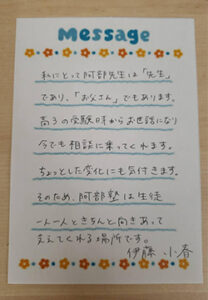 Message
私にとって阿部先生は「先生」
であり、「お父さん」でもあります。
高3の受験時からお世話になり
今でも相談に乗ってくれます。
ちょっとした変化にも気付きます。
そのため、阿部塾は生徒
一人一人ときちんと向きあって
支えてくれる場所です。
伊藤 小春